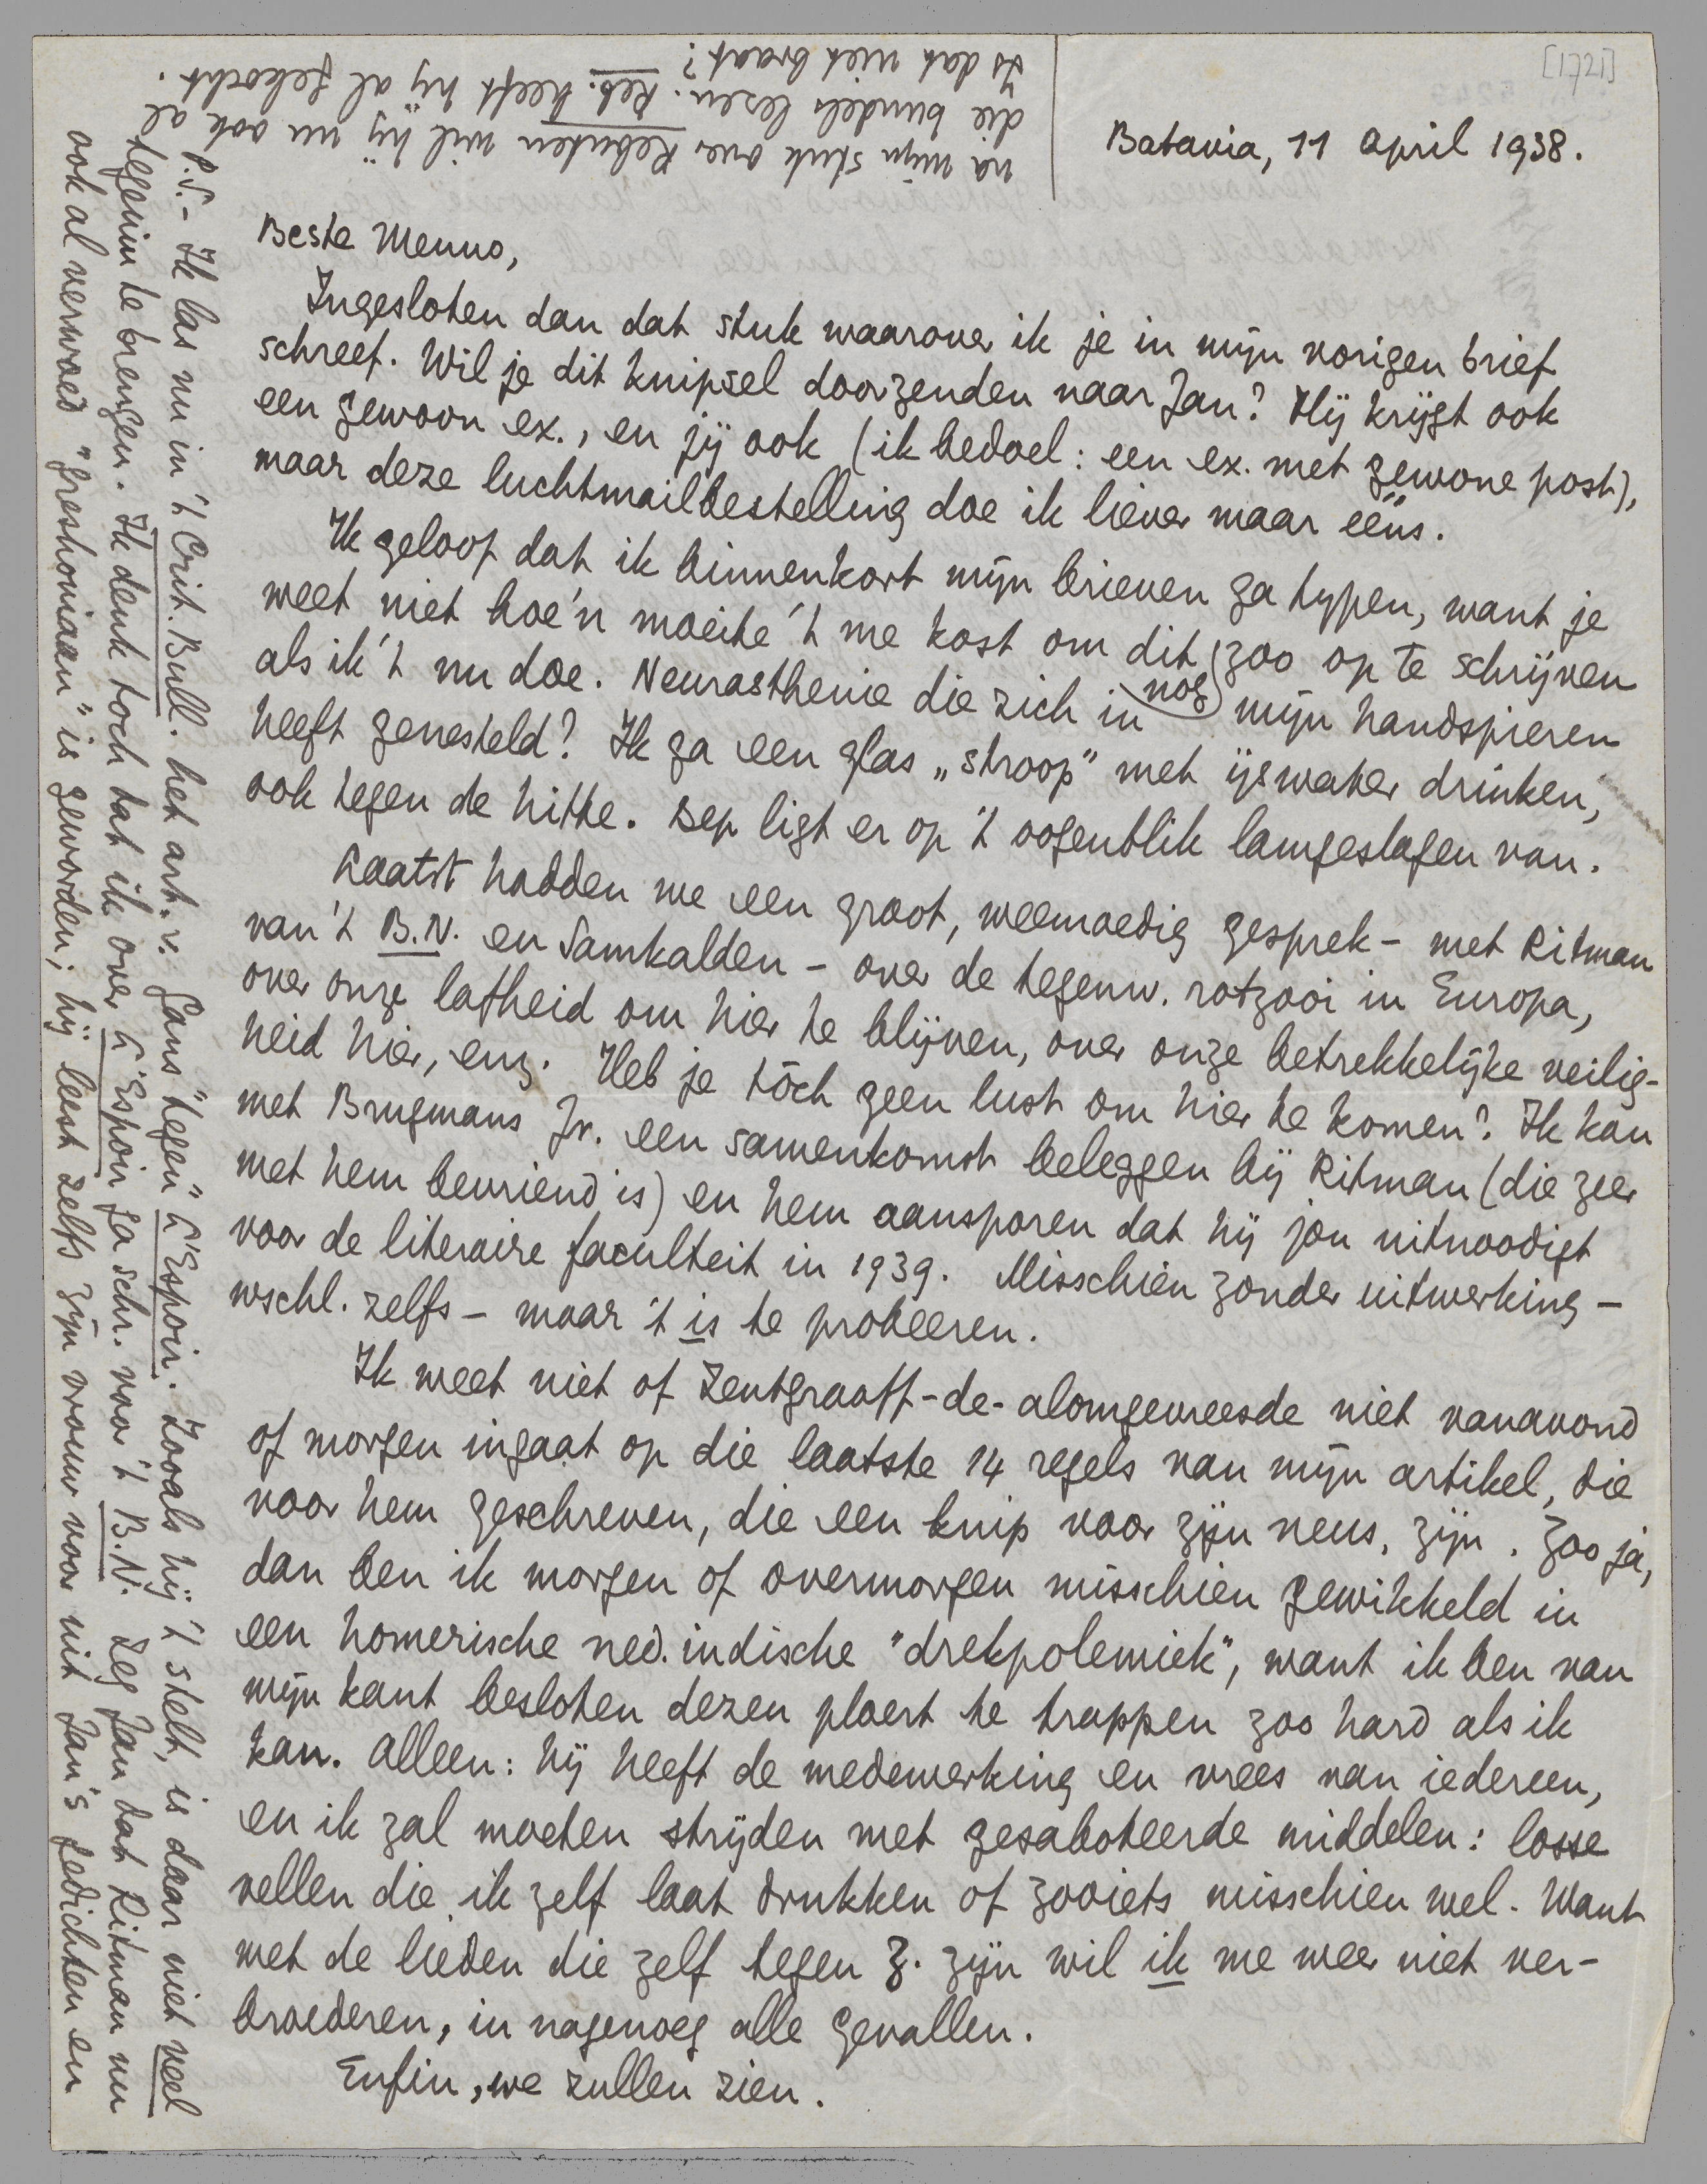 [1721]
Batavia, 11 April 1938.
Beste Menno,
Ingesloten dan dat stuk waarover ik je in mijn vorigen brief
schreef. Wil je dit knipsel doorzenden naar Jan? Hij krijgt ook
een gewoon ex., en jij ook (ik bedoel: een ex. met gewone post),
maar deze luchtmailbestelling doe ik liever maar ééns.
Ik geloof dat ik binnenkort mijn brieven ga typen, want je
weet niet hoe'n moeite 't me kost om dit nog zoo op te schrijven
als ik 't nu doe. Neurasthenie die zich in mijn handspieren
heeft genesteld? Ik ga een glas „stroop" met ijswater drinken,
ook tegen de hitte. Bep ligt er op 't oogenblik lamgeslagen van.
Laatst hadden we een groot, weemoedig gesprek - met Ritman
van 't B.N. en Samkalden - over de tegenw. rotzooi in Europa,
over onze lafheid om hier te blijven, over onze betrekkelijke veilig-
heid hier, enz. Heb je tòch geen lust om hier te komen? Ik kan
met Brugmans Jr. een samenkomst beleggen bij Ritman (die zeer
met hem bevriend is) en hem aansporen dat hij jou uitnoodigt
voor de literaire faculteit in 1939. Misschien zonder uitwerking -
wschl. zelfs - maar 't is te probeeren.
Ik weet niet of Zentgraaff-de-alomgevreesde niet vanavond
of morgen ingaat op die laatste 14 regels van mijn artikel, die
voor hem geschreven, die een knip voor zijn neus, zijn. Zoo ja,
dan ben ik morgen of overmorgen misschien gewikkeld in
een homerische ned. indische "drekpolemiek", want ik ben van
mijn kant besloten dezen ploert te trappen zoo hard als ik
kan. Alleen: hij heeft de medewerking en vrees van iedereen,
en ik zal moeten strijden met gesaboteerde middelen: losse
vellen die ik zelf laat drukken of zooiets misschien wel. Want
met de lieden die zelf tegen Z. zijn wil ik me weer niet ver-
broederen, in nagenoeg alle gevallen.
Enfin, we zullen zien.
P.S. - Ik las nu in 't Crit. Bull. het art. v. Gans "tegen" L'Espoir. Zooals hij 't stelt, is daar niet veel
tegenin te brengen. Ik denk toch dat ik over L'Espoir ga schr. voor 't B.N. Zeg Jan dat Ritman nu
ook al verwoed "greshoniaan" is geworden; hij leest zelfs zijn vrouw voor uit Jan's gedichten en
na mijn stuk over Kebuten wil hij nu ook al
die bundels lezen. Keb. heeft hij al gekocht.
Is dat niet braaf?